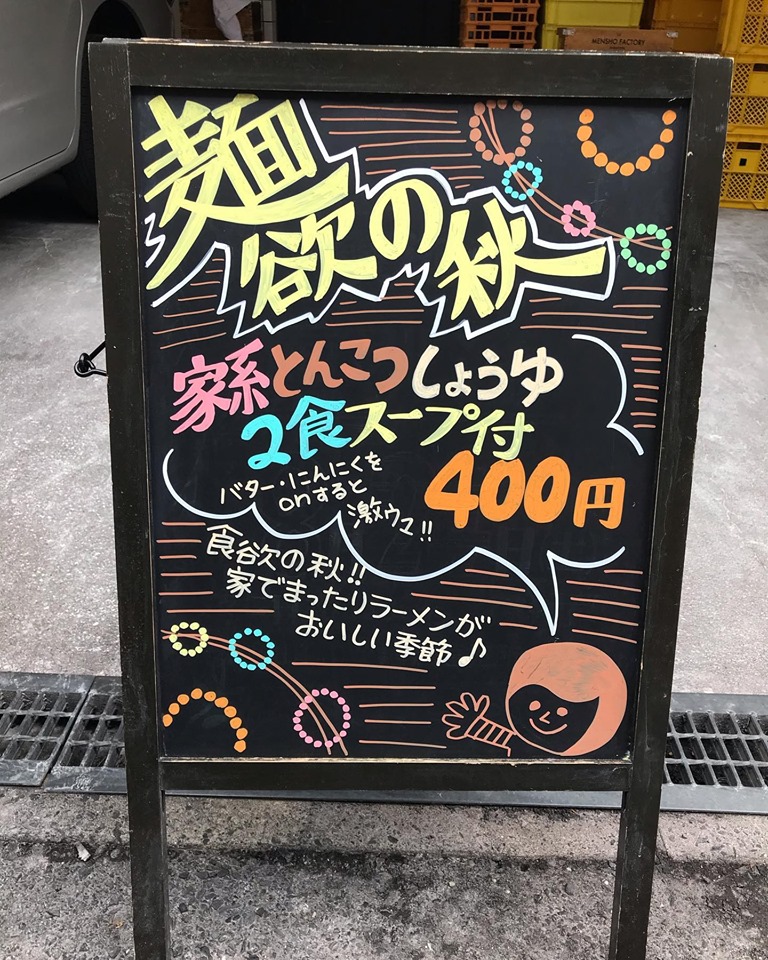 MENSHO FACTORY
麺
欲の秋
家系とんこつしょうゆ
2食スープ付
400円
バター・にんにくを
onすると
激ウユ!!
食欲の秋!!
家でまったりラーメンが
おいしい季節♪